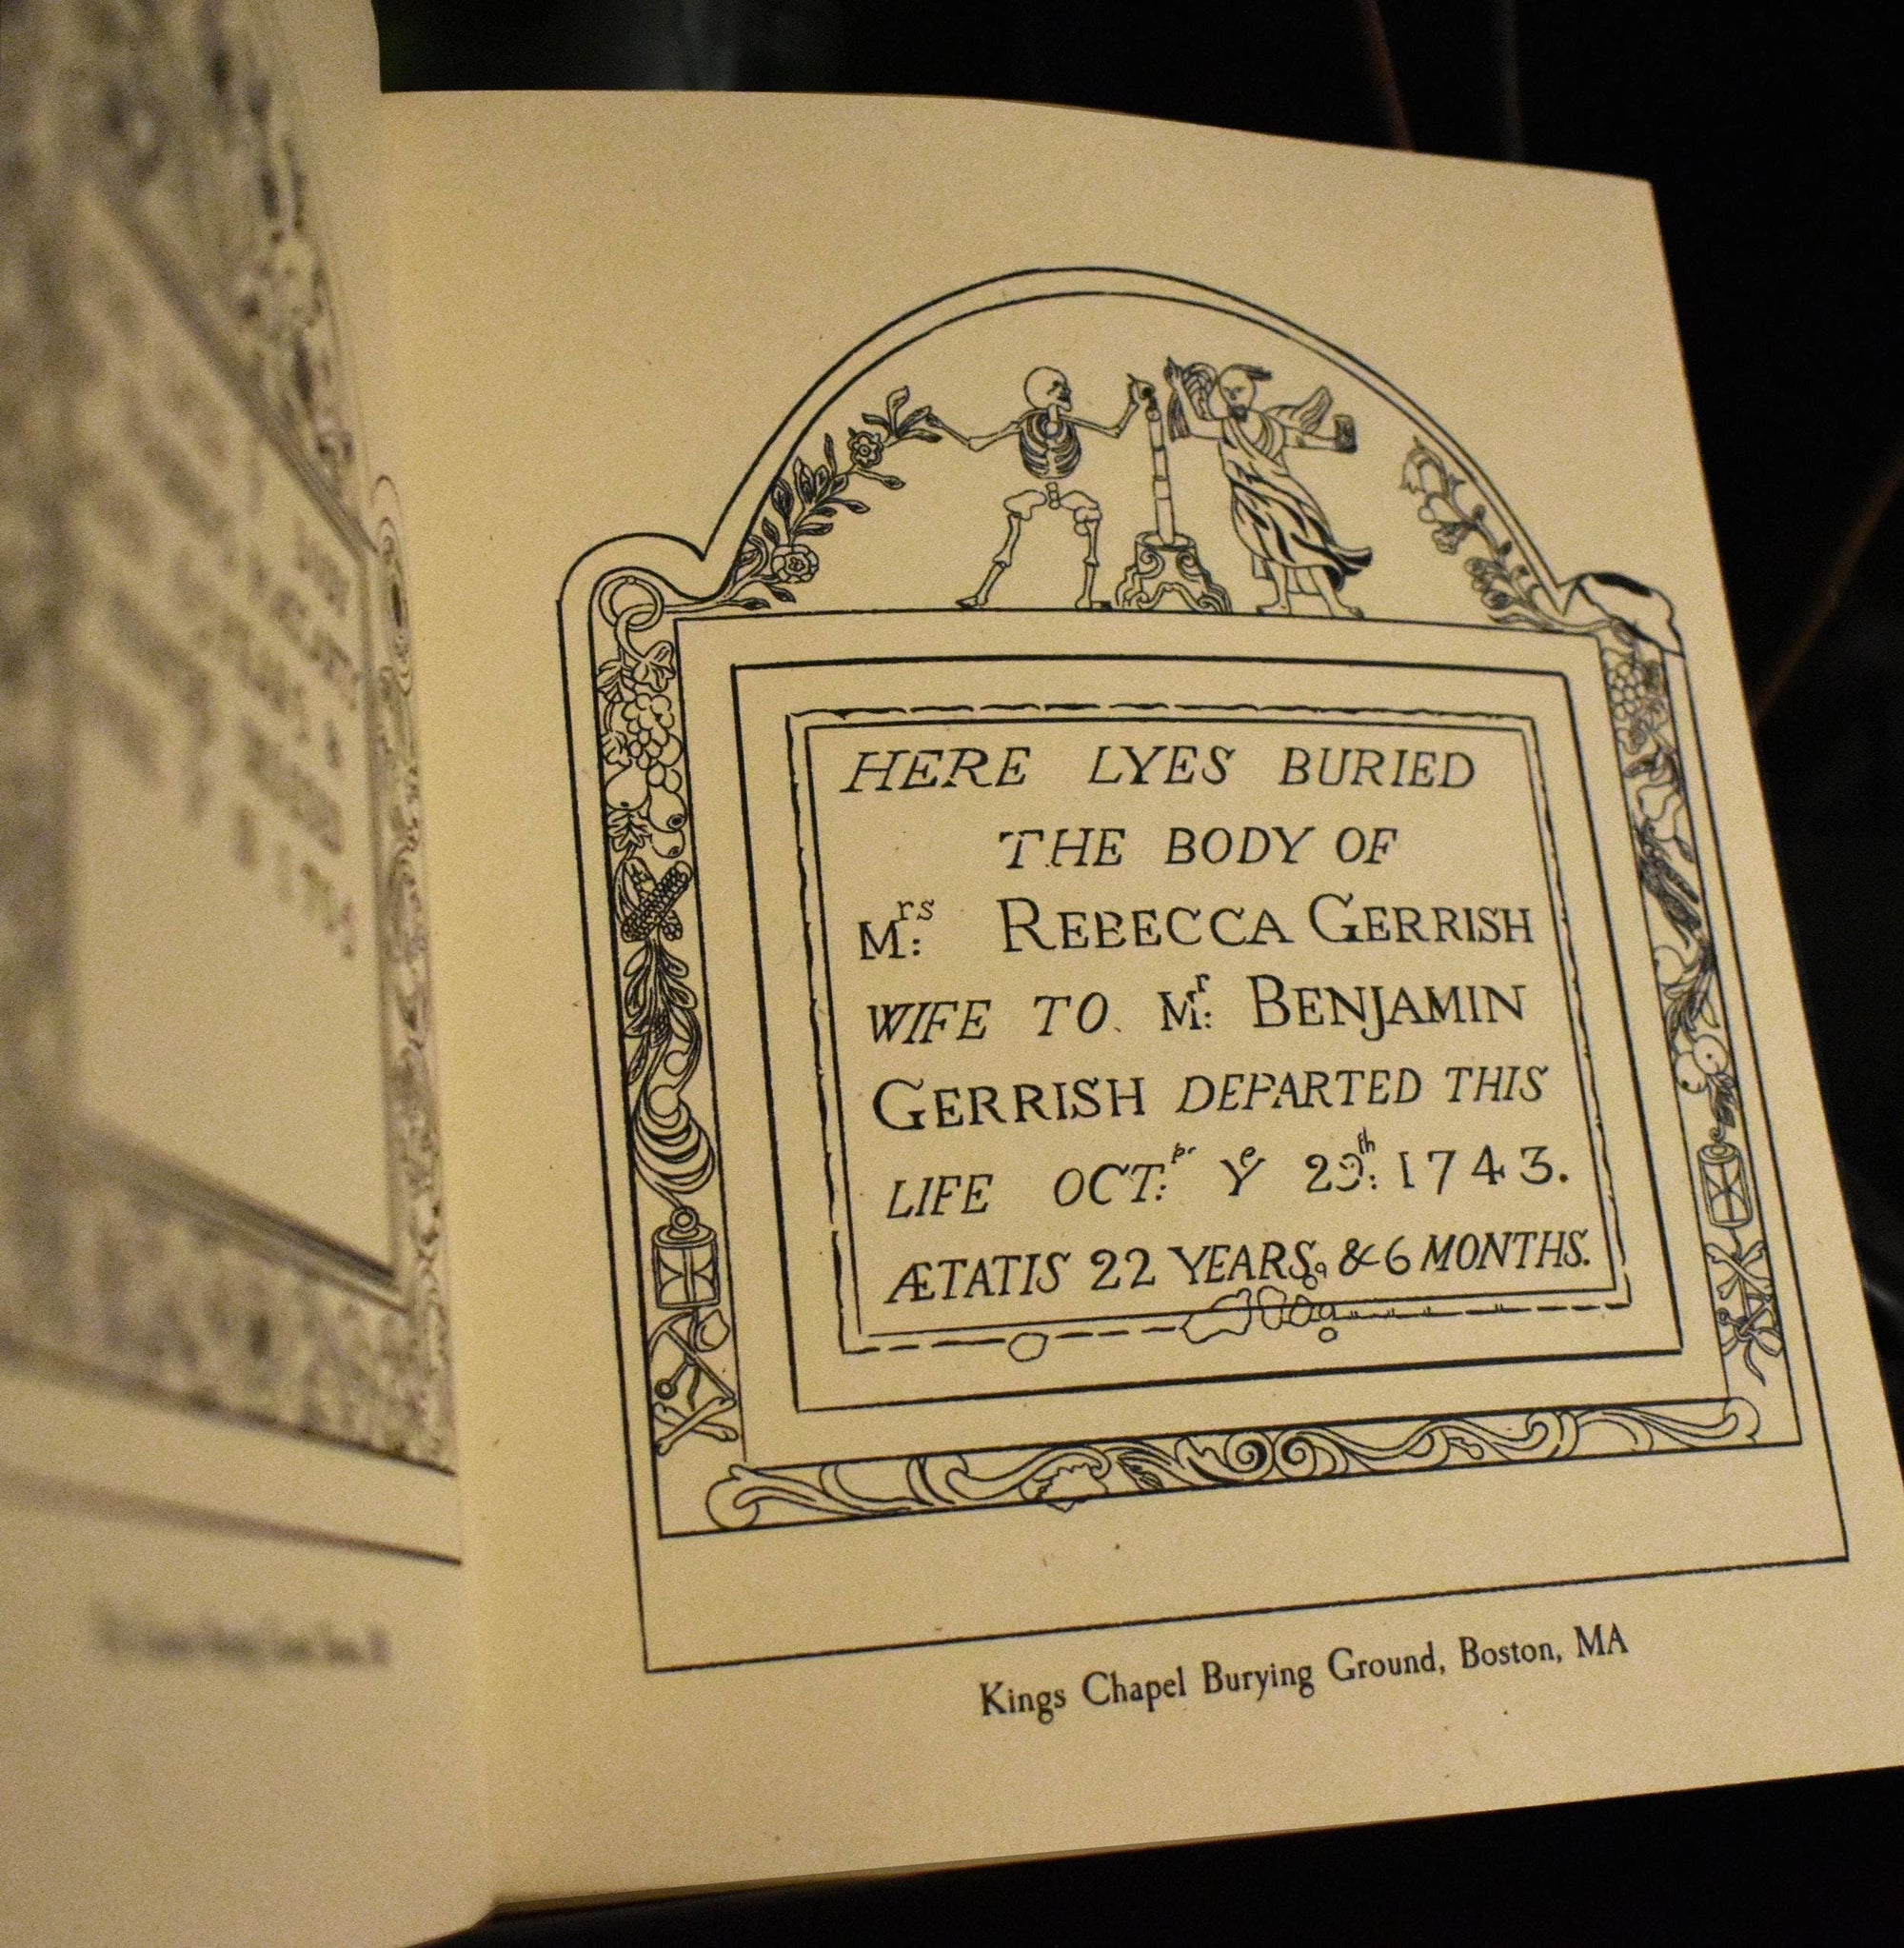 HERE LYES BURIED
THE BODY OF
Mrs: REBECCA GERRISH
WIFE TO Mr: BENJAMIN
GERRISH DEPARTED THIS
LIFE OCT:br Ye 29th: 1743.
ÆTATIS 22 YEARS, & 6 MONTHS.
Kings Chapel Burying Ground, Boston, MA